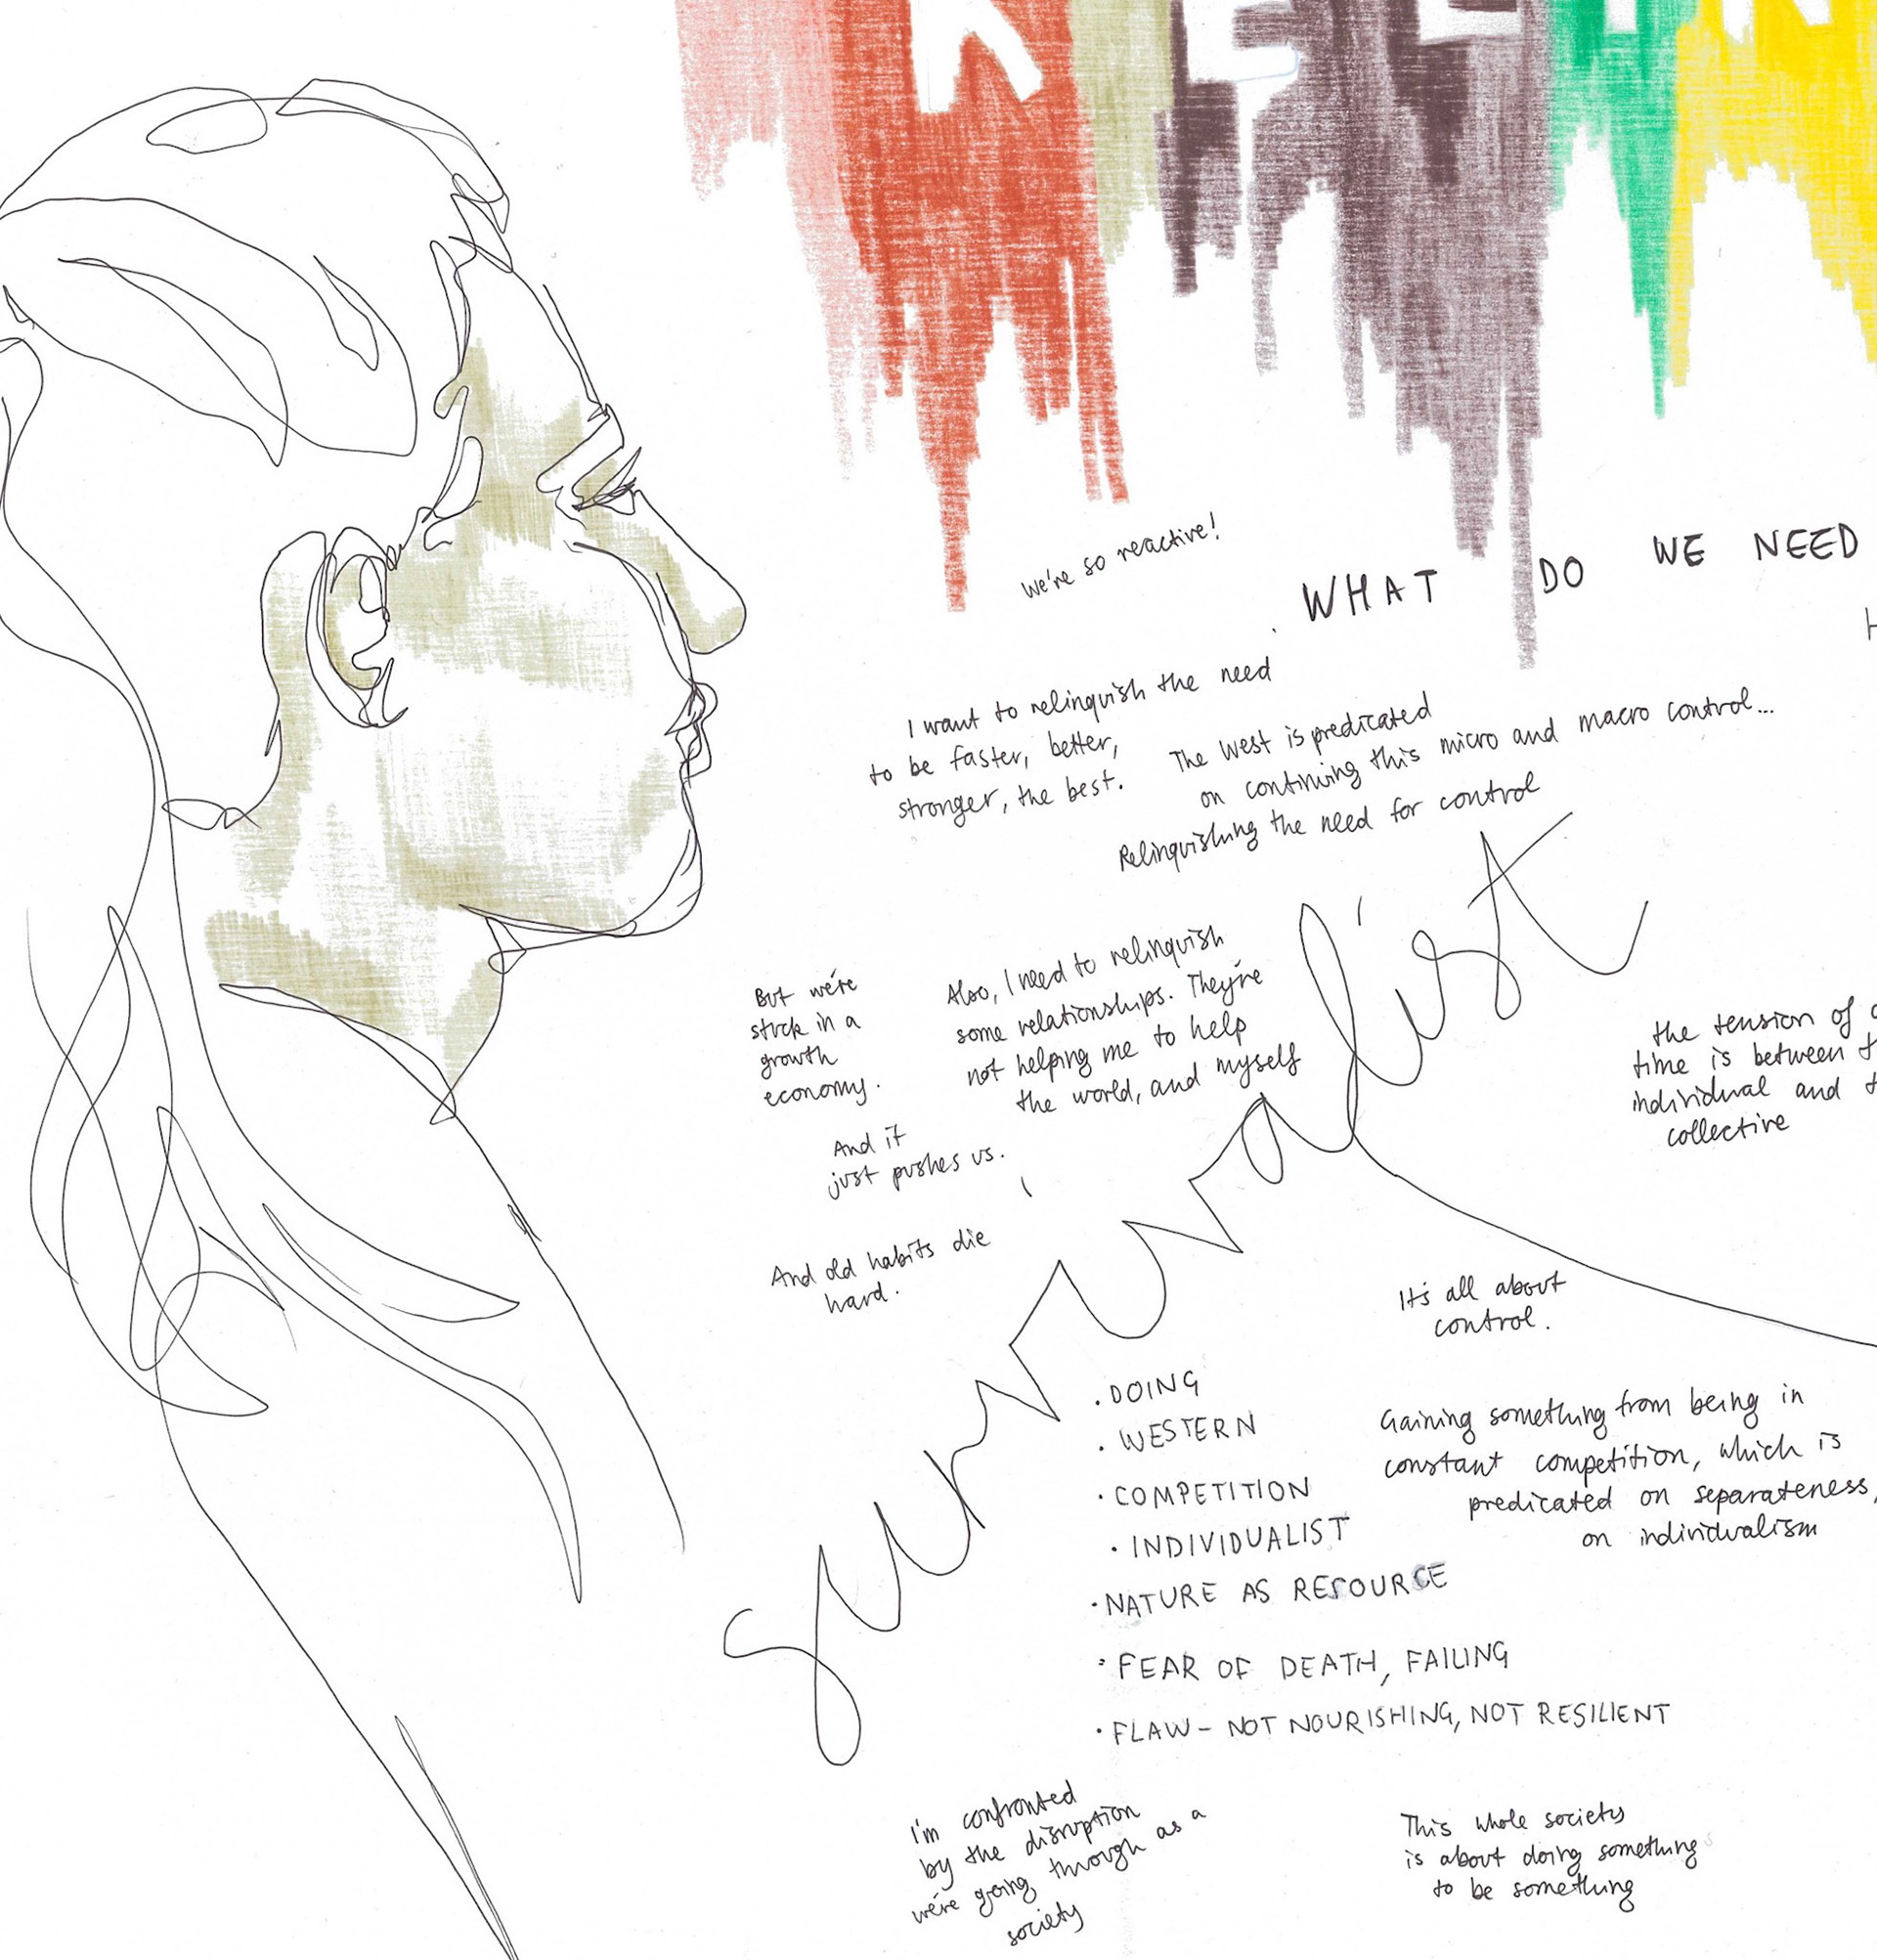 RELIN
We're so reactive!
WHAT DO WE NEED
H
I want to relinquish the need
to be faster, better,
stronger, the best.
The West is predicated
on continuing this micro and macro control...
Relinquishing the need for control
But we're
stuck in a
growth
economy.
Also, I need to relinquish
some relationships. They're
not helping me to help
the world, and myself
And it
just pushes us.
And old habits die
hard.
survivalist
the tension of
time is between
individual and
collective
It's all about
control.
• DOING
• WESTERN
• COMPETITION
• INDIVIDUALIST
• NATURE AS RESOURCE
• FEAR OF DEATH, FAILING
• FLAW – NOT NOURISHING, NOT RESILIENT
Gaining something from being in
constant competition, which is
predicated on separateness,
on individualism
I'm confronted
by the disruption
we're going through as a
society
This whole society
is about doing something
to be something